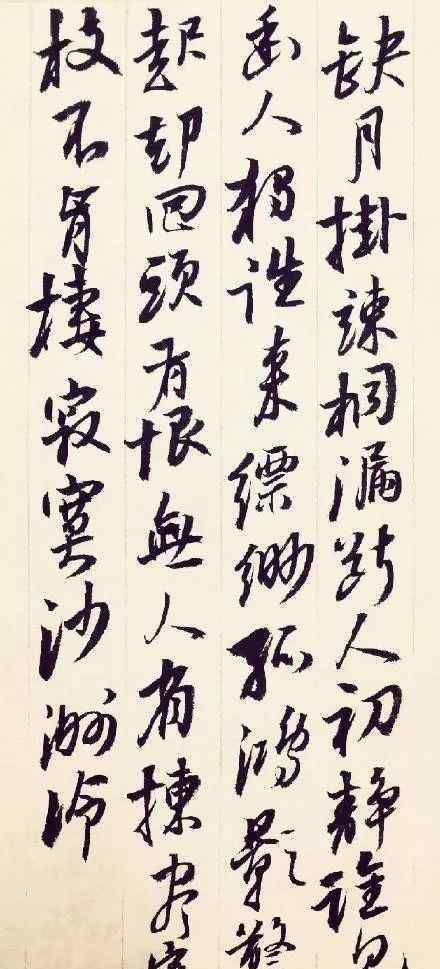 缺月掛疎桐漏断人初静誰見
幽人獨往来縹緲孤鴻影驚
起却回頭有恨無人省揀盡寒
枝不肯棲寂寞沙洲冷